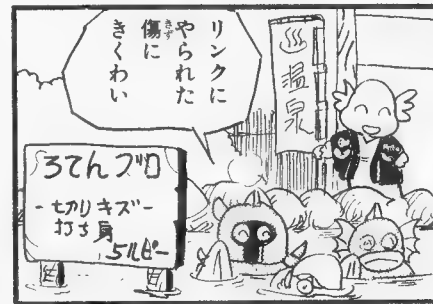 リンクに
やられた
傷に
きくわい
♨温泉
ろてんブロ
-切りキズ-
打ち身
5ルピー